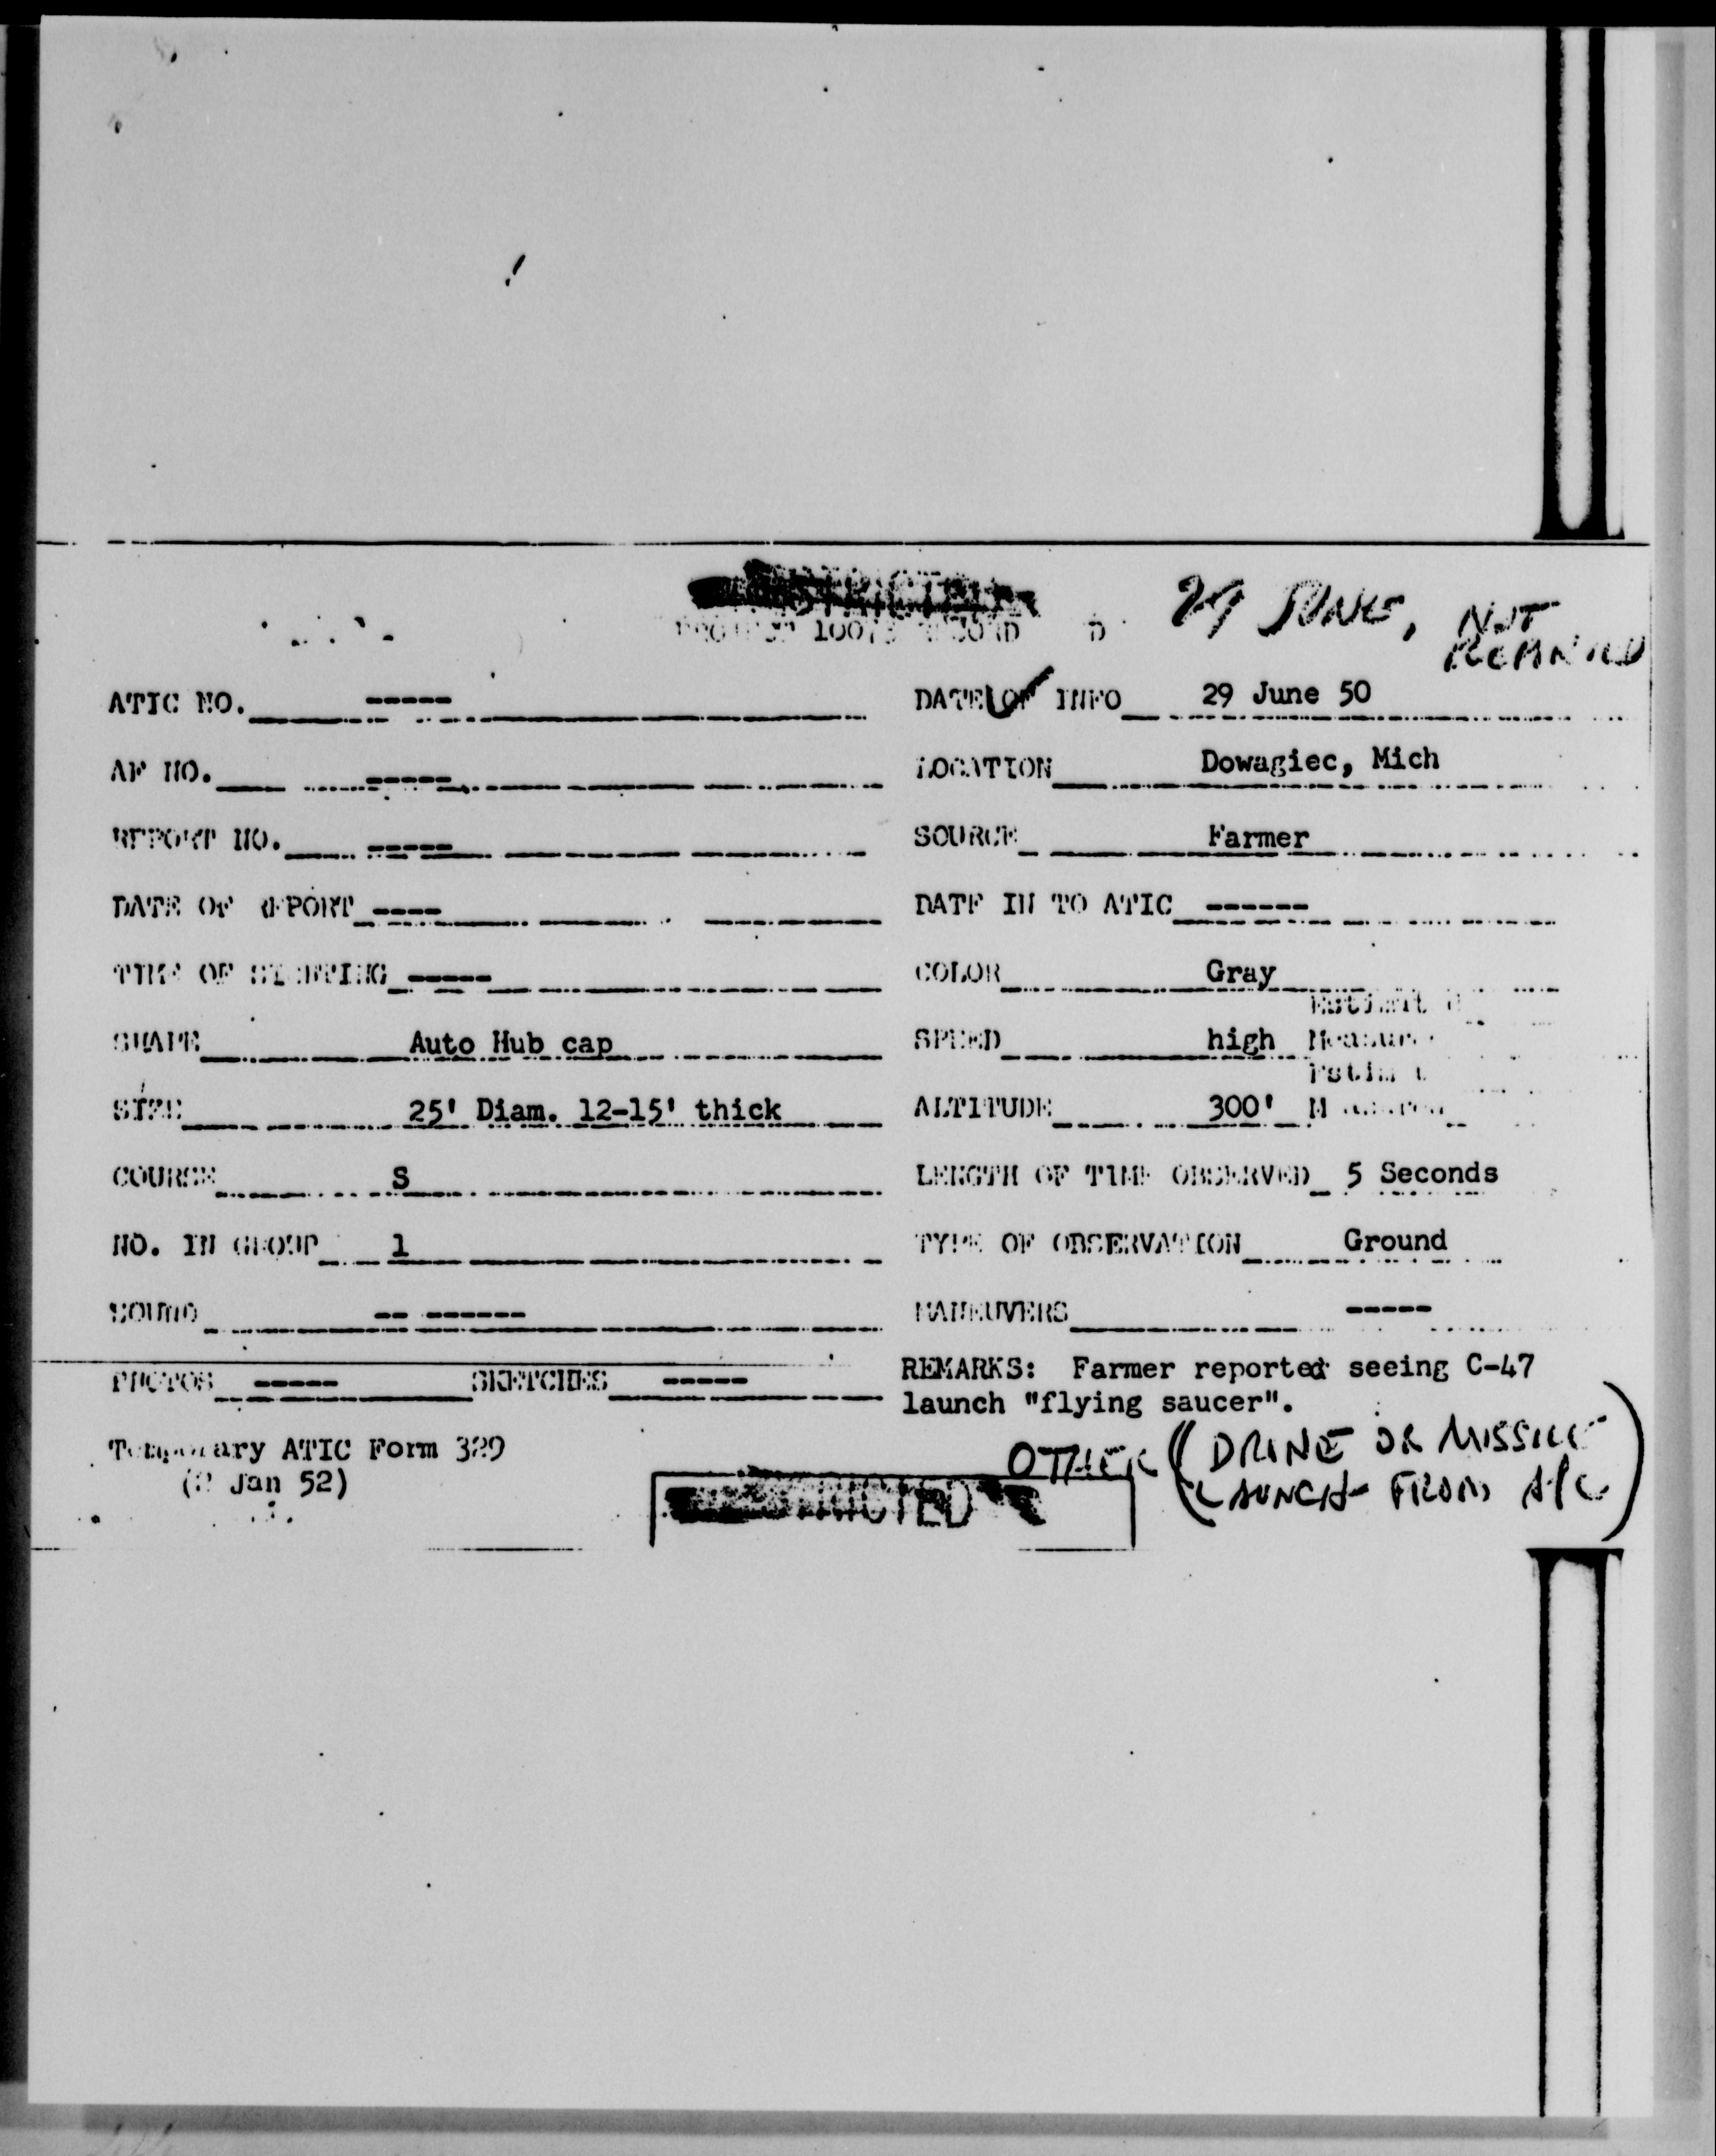 29 JUNE, NOT
PROJECT 10073 RECORD
ATIC NO. -----
DATE OF INFO 29 June 50
AF NO. -----
LOCATION Dowagiec, Mich
REPORT NO. -----
SOURCE Farmer
DATE OF REPORT ----
DATE IN TO ATIC ------
TIME OF SIGHTING -----
COLOR Gray
SHAPE Auto Hub cap
SPEED high
SIZE 25' Diam. 12-15' thick
ALTITUDE 300'
COURSE S
LENGTH OF TIME OBSERVED 5 Seconds
NO. IN GROUP 1
TYPE OF OBSERVATION Ground
SOUND -- ------
MANEUVERS -----
PHOTOS ----- SKETCHES -----
REMARKS: Farmer reported seeing C-47
launch "flying saucer".
Temporary ATIC Form 329
(2 Jan 52)
OTHER (DRONE OR MISSILE
LAUNCH FROM A/C)
RESTRICTED